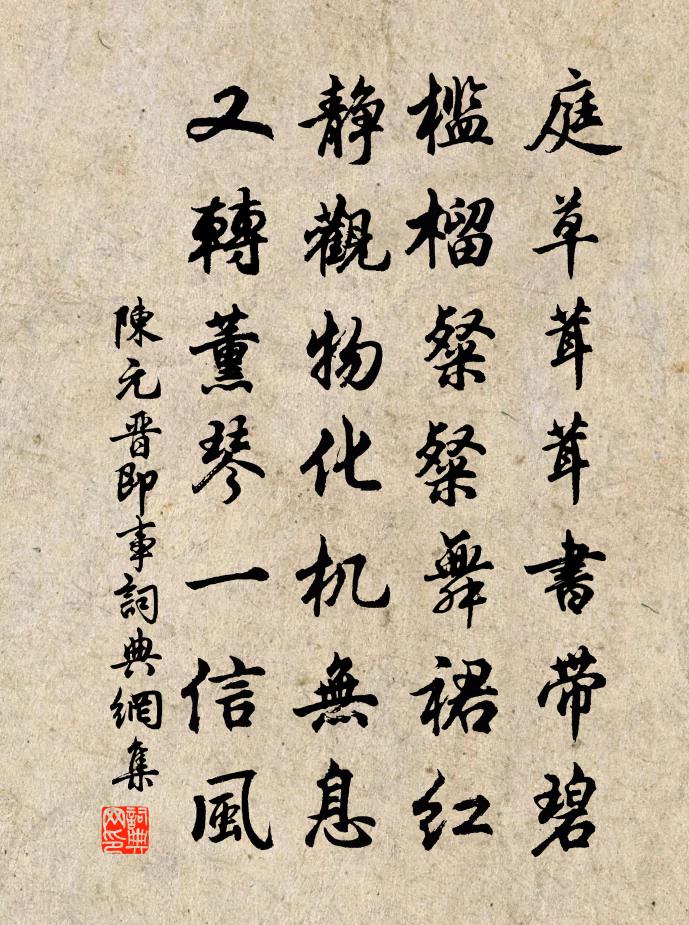 庭草茸茸書带碧
檻榴粲粲舞裙紅
静觀物化机無息
又轉薰琴一信風
陳元晋即事詞典網集
詞典网印